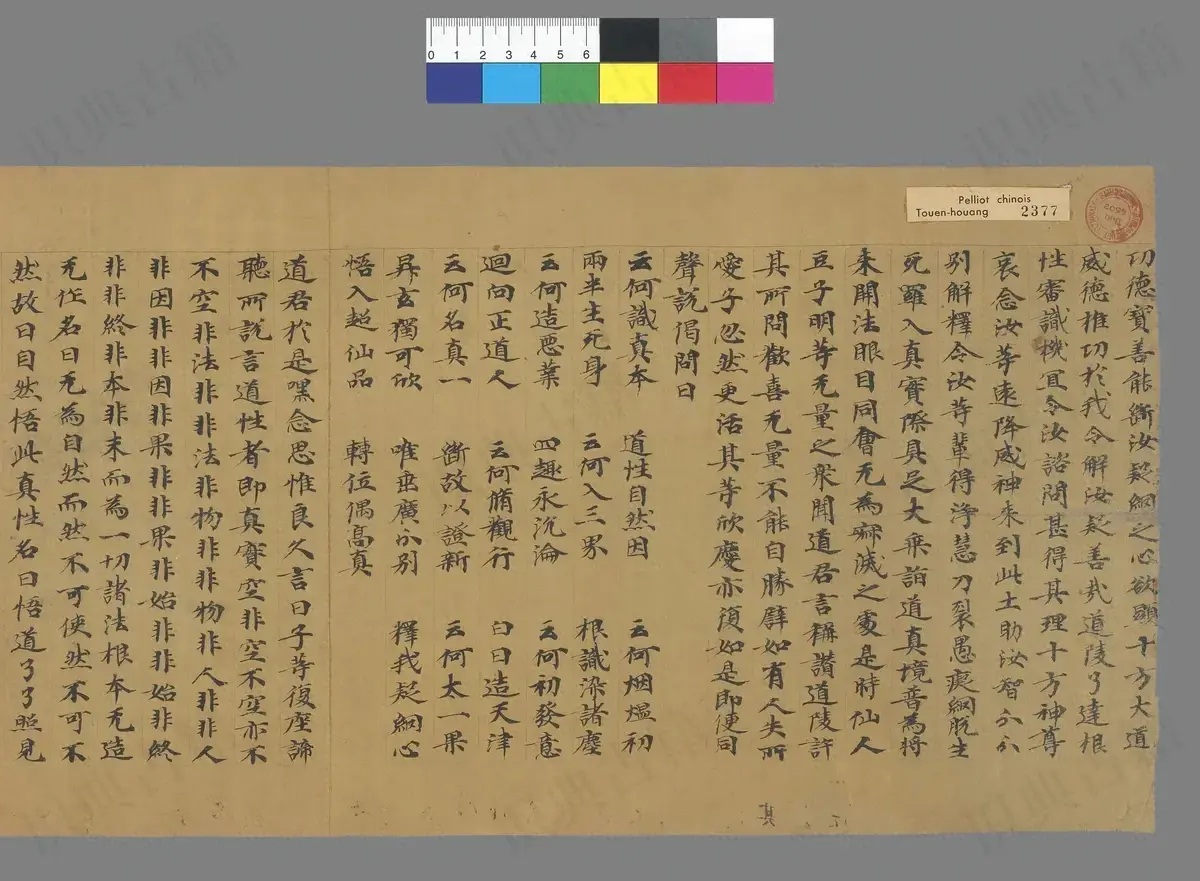 Pelliot chinois
Touen-houang 2377
0 1 2 3 4 5 6
功德寶善能斷汝疑網之心欲顯十方大道
威德推功於我令解汝疑善哉道陵了達根
性審識機宜令汝諮問甚得其理十方神尊
哀念汝等遠降威神來到此土助汝智分分
别解釋令汝等輩得淨慧刀裂愚癡網脱生
死羅入真實際具足大乘詣道真境普為將
來開法眼目同會无為寂滅之處是時仙人
豆子明等无量之衆聞道君言稱讚道陵許
其所問歡喜无量不能自勝譬如有人失所
愛子忽然更活其等欣慶亦復如是即便同
聲説偈問曰
云何識真本 道性自然因 云何烟熅初
兩半生死身 云何入三界 根識染諸塵
云何造惡業 四趣永沉淪 云何初發意
迴向正道人 云何脩觀行 白日造天津
云何名真一 斷故以證新 云何太一果
昇玄獨可欣 唯垂廣分别 釋我疑網心
悟入超仙品 轉位偶高真
道君於是嘿念思惟良久言曰子等復座諦
聽所説言道性者即真實空非空不空亦不
不空非法非非法非物非非物非人非非人
非因非非因非果非非果非始非非始非終
非非終非本非末而為一切諸法根本无造
无作名曰无為自然而然不可使然不可不
然故曰自然悟此真性名曰悟道了了照見
其